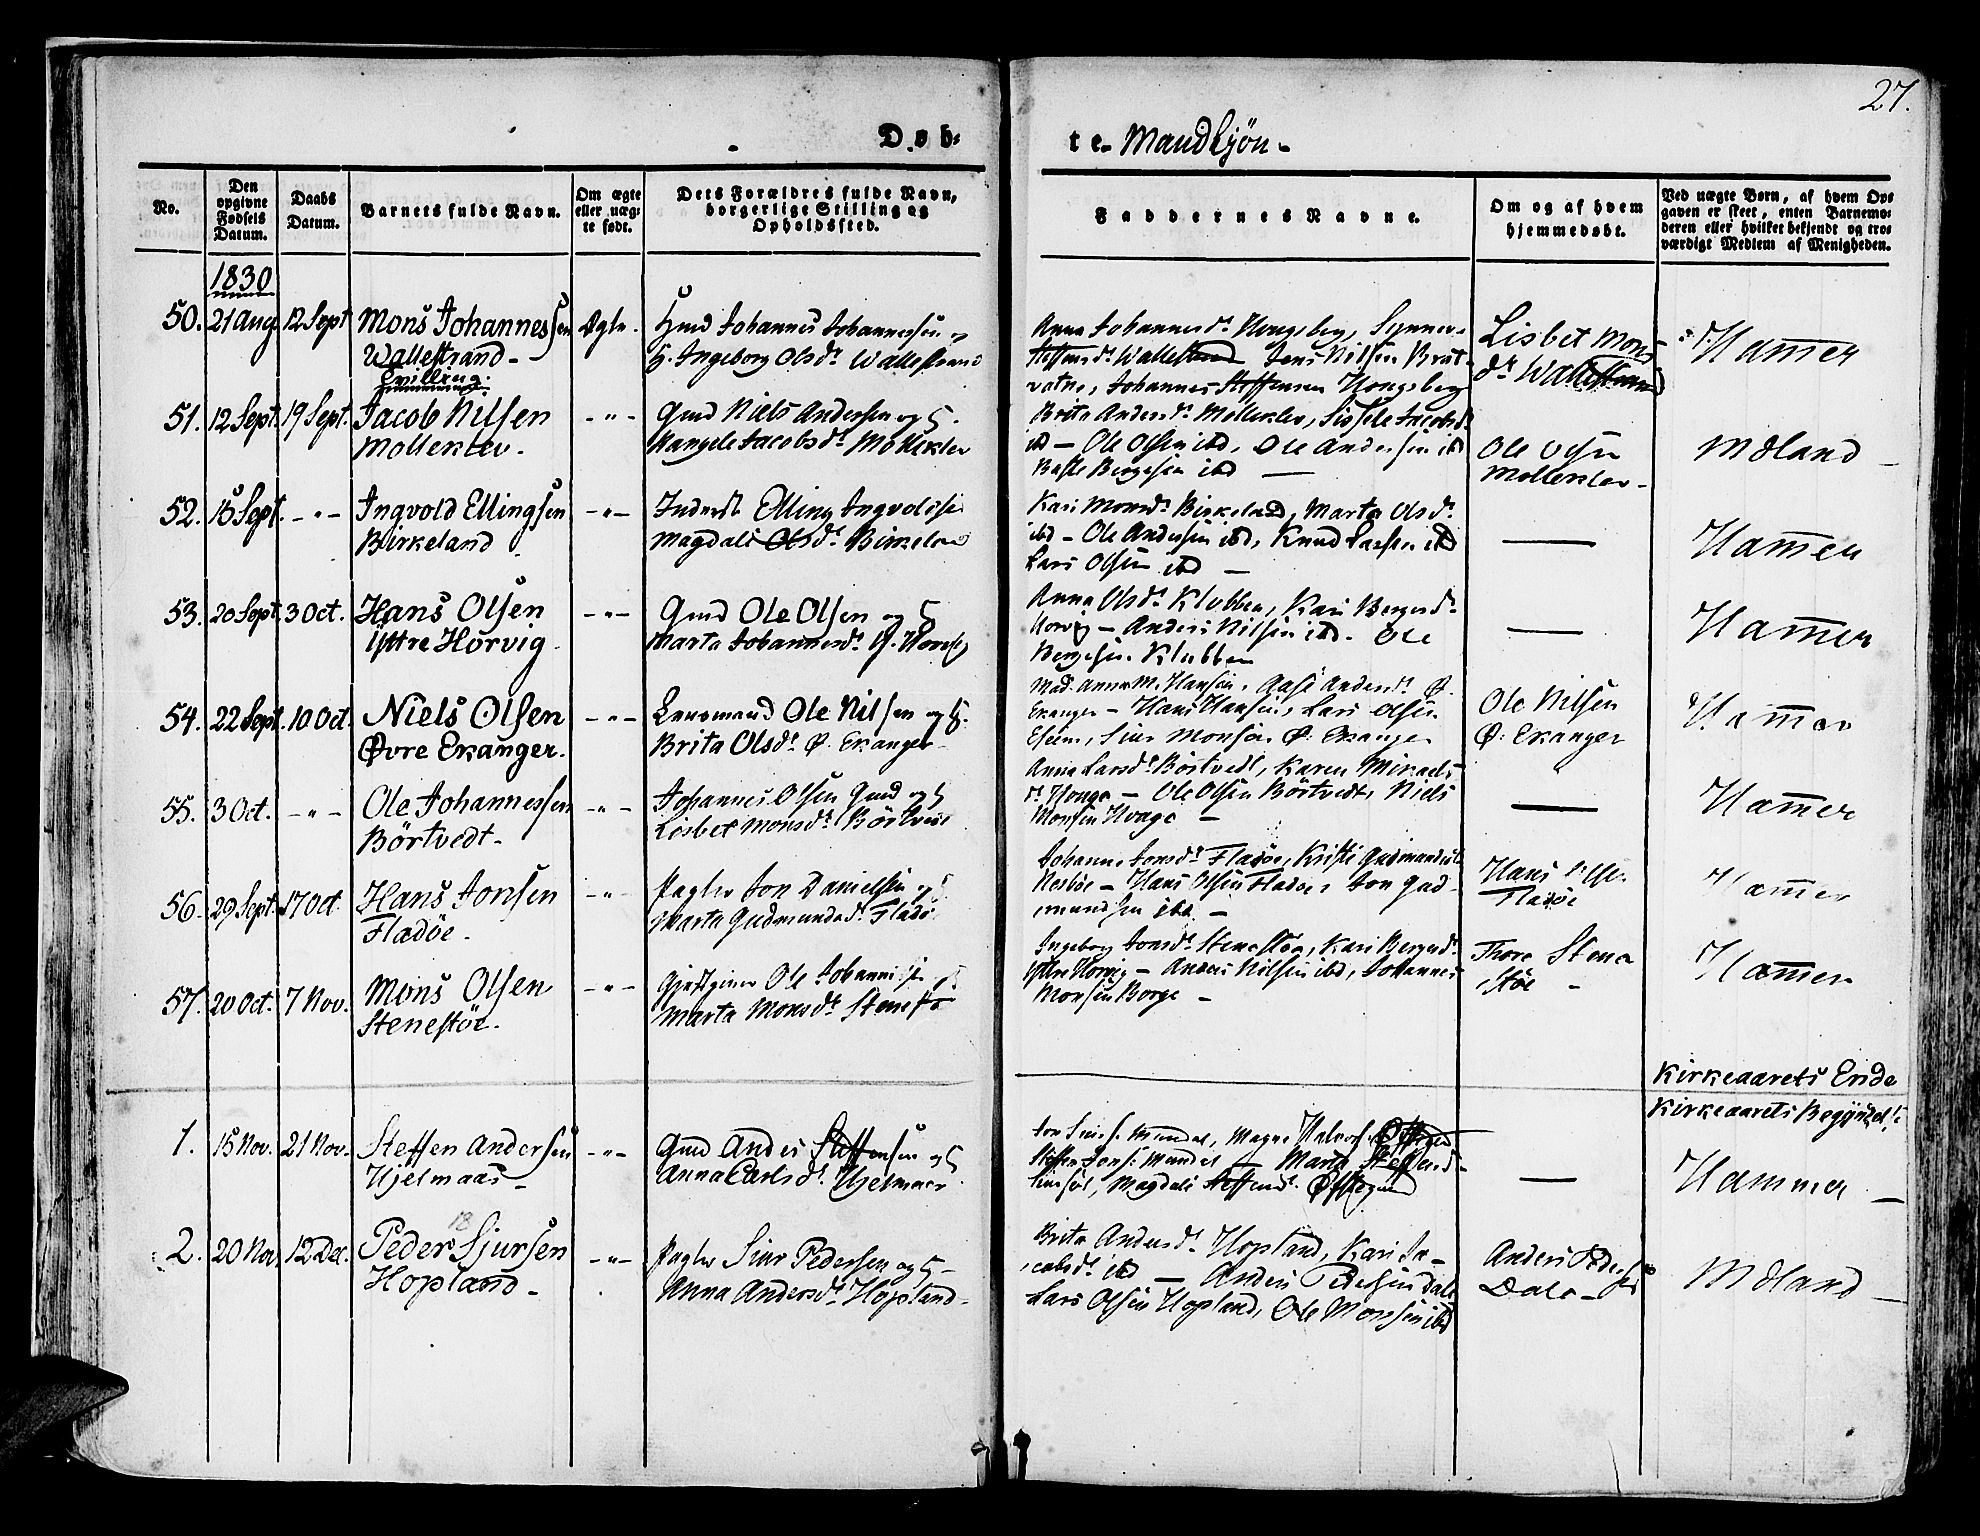 27.
Døb-
te. Mandkjön-
No.
Den opgivne Fødsels Datum.
Daabs Datum.
Barnets fulde Navn.
Om ægte eller uægte født.
Dets Forældres fulde Navn, borgerlige Stilling og Opholdssted.
Faddernes Navne.
Om og af hvem hjemmedøbt.
Ved uægte Børn, af hvem Opgaven er skeet, enten Barnemoderen eller hvilket bekjendt og troværdigt Medlem af Menigheden.
1830
50. 21 Aug 12 Sept Mons Johannessen Ægte.
Wallestrand -
Tvilling.
Johannes Johannessen og
H. Ingeborg Olsdr. Wallestrand
Anna Johannesdr. Hougeberg, Synneve
Steffensdr. Wallestrand Jens Nilsen Brat
vatne, Johannes Steffensen Hougeberg
Lisbet Mons
dr Wallestrand
Hamer
51. 12 Sept. 19 Sept. Jacob Nilsen - " -
Molleklev.
Gmd Niels Andersen og H.
Mangele Jacobsdr. Molleklev
Brita Andersdr. Molleklev, Sissele Jacobsdr.
ibd - Ole Olsen ibd, Ole Andersen ibd
Baste Bergesen ibd -
Ole Olsen
Molleklev -
Mdland -
52. 18 Sept. - " - Ingvold Ellingsen - " -
Birkeland
Inderst Elling Ingvoldsen
Magdali Olsdr. Birkeland
Kari Monsdr. Birkeland, Marta Olsdr.
ibd - Ole Andersen ibd, Knud Larsen ibd
Lars Olsen ibd -
Hamer
53. 20 Sept. 3 Oct. Hans Olsen - " -
Ÿttre Horvig
Gmd Ole Olsen og H
Marta Johannesdr. Ÿ. Horvig
Anna Olsdr. Klubben, Kari Bergesdr.
Horvig - Anders Nilsen ibd. Ole
Bergesen Klubben
Hamer
54. 22 Sept. 10 Oct. Niels Olsen - " -
Øvre Ekanger.
Lensmand Ole Nilsen og H.
Brita Olsdr. Ø. Ekanger
Mad. Anna M. Hansen, Aase Andersdr. Ø.
Ekanger - Hans Hansen, Lars Olsen
Siur Monsen Ø. Ekanger
Ole Nilsen
Ø. Ekanger
Hamer
55. 3 Oct. - " - Ole Johannessen - " -
Börtvedt -
Johannes Olsen Gmd og H
Lisbet Monsdr. Börtvedt
Anna Larsdr. Börtvedt, Karen Mikaels
dr. Houge - Ole Olsen Börtvedt, Niels
Monsen Houge -
Hamer
56. 29 Sept. 17 Oct. Hans Jonsen - " -
Fladöe.
Jon Danielsen og H
Marta Gudmundsdr. Fladö
Johanne Jonsdr. Fladöe, Kristi Gudmundsdr.
Nesböe - Hans Olsen Fladöe, Jon Gud
mundsen ibd. -
Hans Olsen
Fladöe
Hamer
57. 20 Oct. 7 Nov. Mons Olsen - " -
Stenestöe.
Gjestgiver Ole Johannessen og H
Marta Monsdr. Stenestö
Ingeborg Jonsdr. Stenestöe, Kari Bergesdr.
Ÿttre Horvig - Anders Nilsen ibd, Johannes
Monsen Borge -
Thore Stene
stöe -
Hamer
Kirkeaarets Ende
Kirkeaarets Begÿndelse
1. 15 Nov. 21 Nov. Steffen Andersen - " -
Hjelmaas -
Gmd Anders Steffensen og H
Anna Carlsdr. Hjelmaas
Mundal, Magne
Steffen Jons. Mundal - Marta Steffensdr.
Magdali Steffensdr.
Hammer -
2. 20 Nov. 12 Dec. Peder Sjursen - " -
18
Hopland -
Siur Pedersen og H -
Anna Andersdr. Hopland -
Brita Andersdr. Hopland, Kari Ja-
cobsdr. ibd - Anders Pedersen Dale
Lars Olsen Hopland, Ole Monsen ibd
Anders Pedersen
Dale -
Mdland -